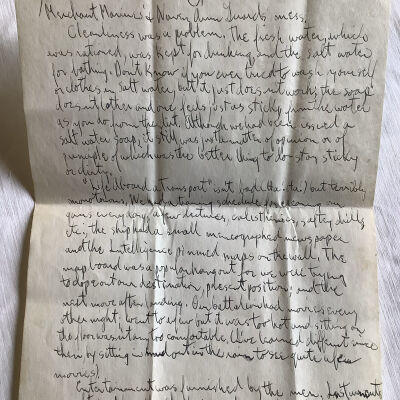 Merchant Marine's & Navy Gun Guards mess.
Cleanliness was a problem. The fresh water, which
was rationed, was kept for drinking, and the salt water
for bathing. Don't know if you ever tried to wash yourself
or clothes in salt water, but it just doesn't work; the soap
doesn't lather and one feels just as sticky from the water
as you do from the dirt. Although we had been issued a
salt water soap, it still was just a matter of opinion or of
principle of which was the better thing to do - stay sticky
or dirty.
"Life Aboard a Transport" isn't bad but terribly
monotonous. We had a training schedule of cleaning our
guns every day, a few lectures, calisthenics, safety drills
etc; the ship had a small mimeographed newspaper
and the Intelligence pinned maps on the wall. The
map board was a popular hang out for us. We were trying
to dope out our destination, present position, and the
next move after landing. Our battalion had movies every
other night. I went to a few but it was too hot and sitting on
the floor wasn't any too comfortable. (I've learned different since
then by sitting in mud out in the rain to see quite a few
movies).
Entertainment was furnished by the men. Instruments